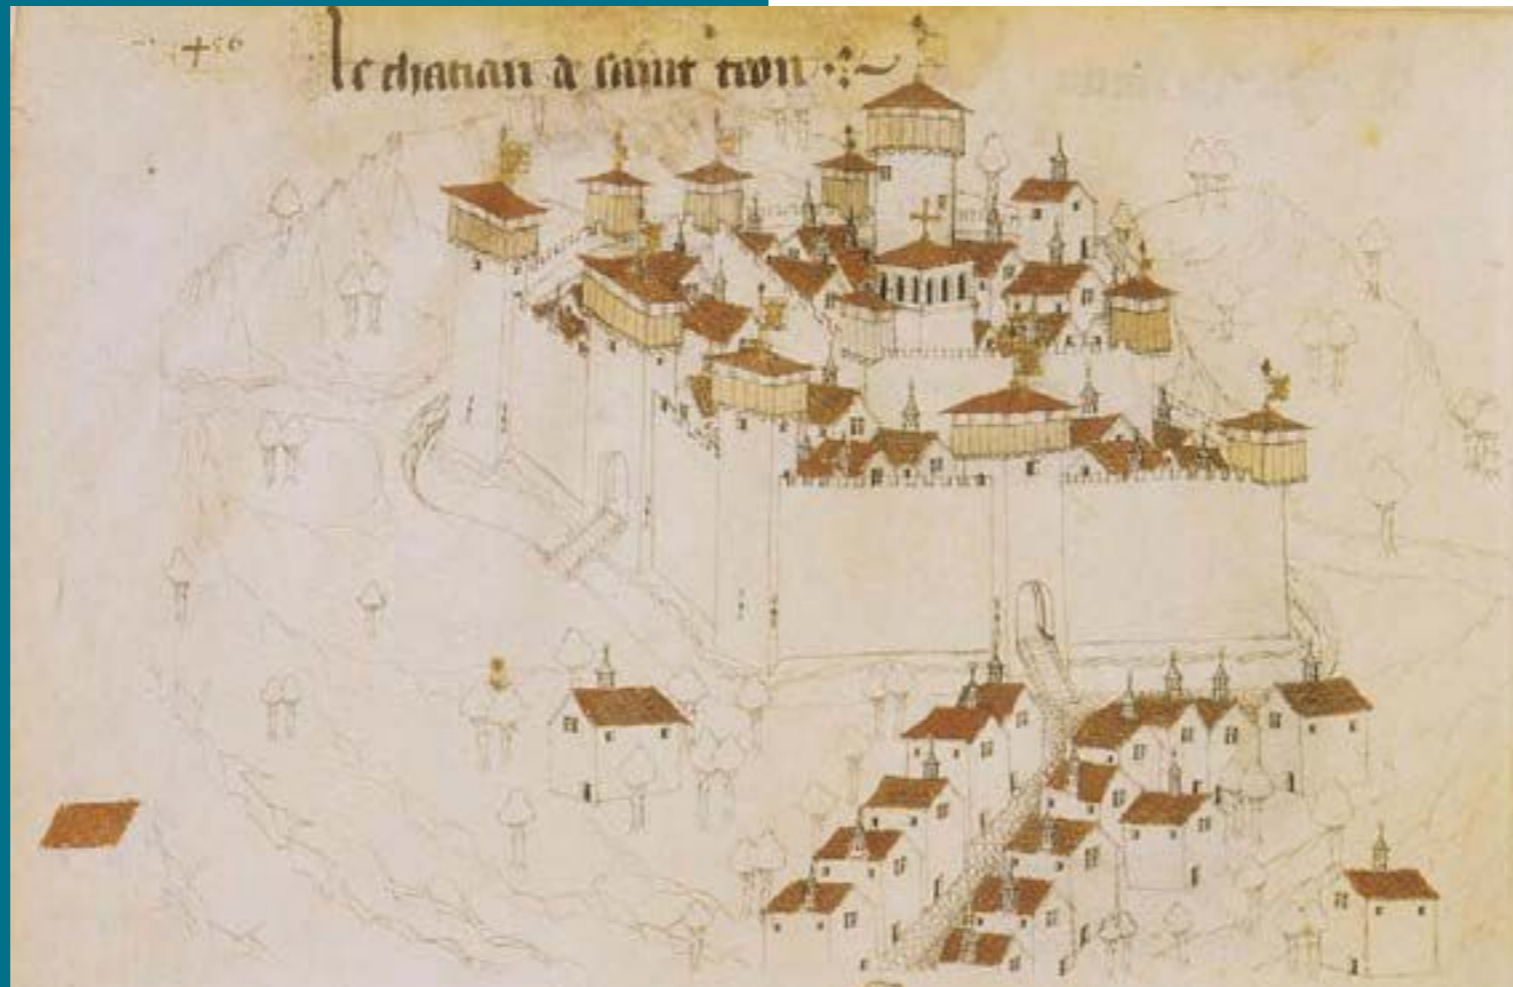 456
le chatiau a saint tron